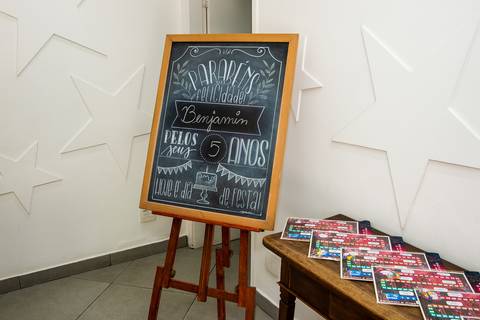 PARABÉNS
felicidades!
Benjamin
PELOS
seus
5
ANOS
HOJE É DIA
de festa!